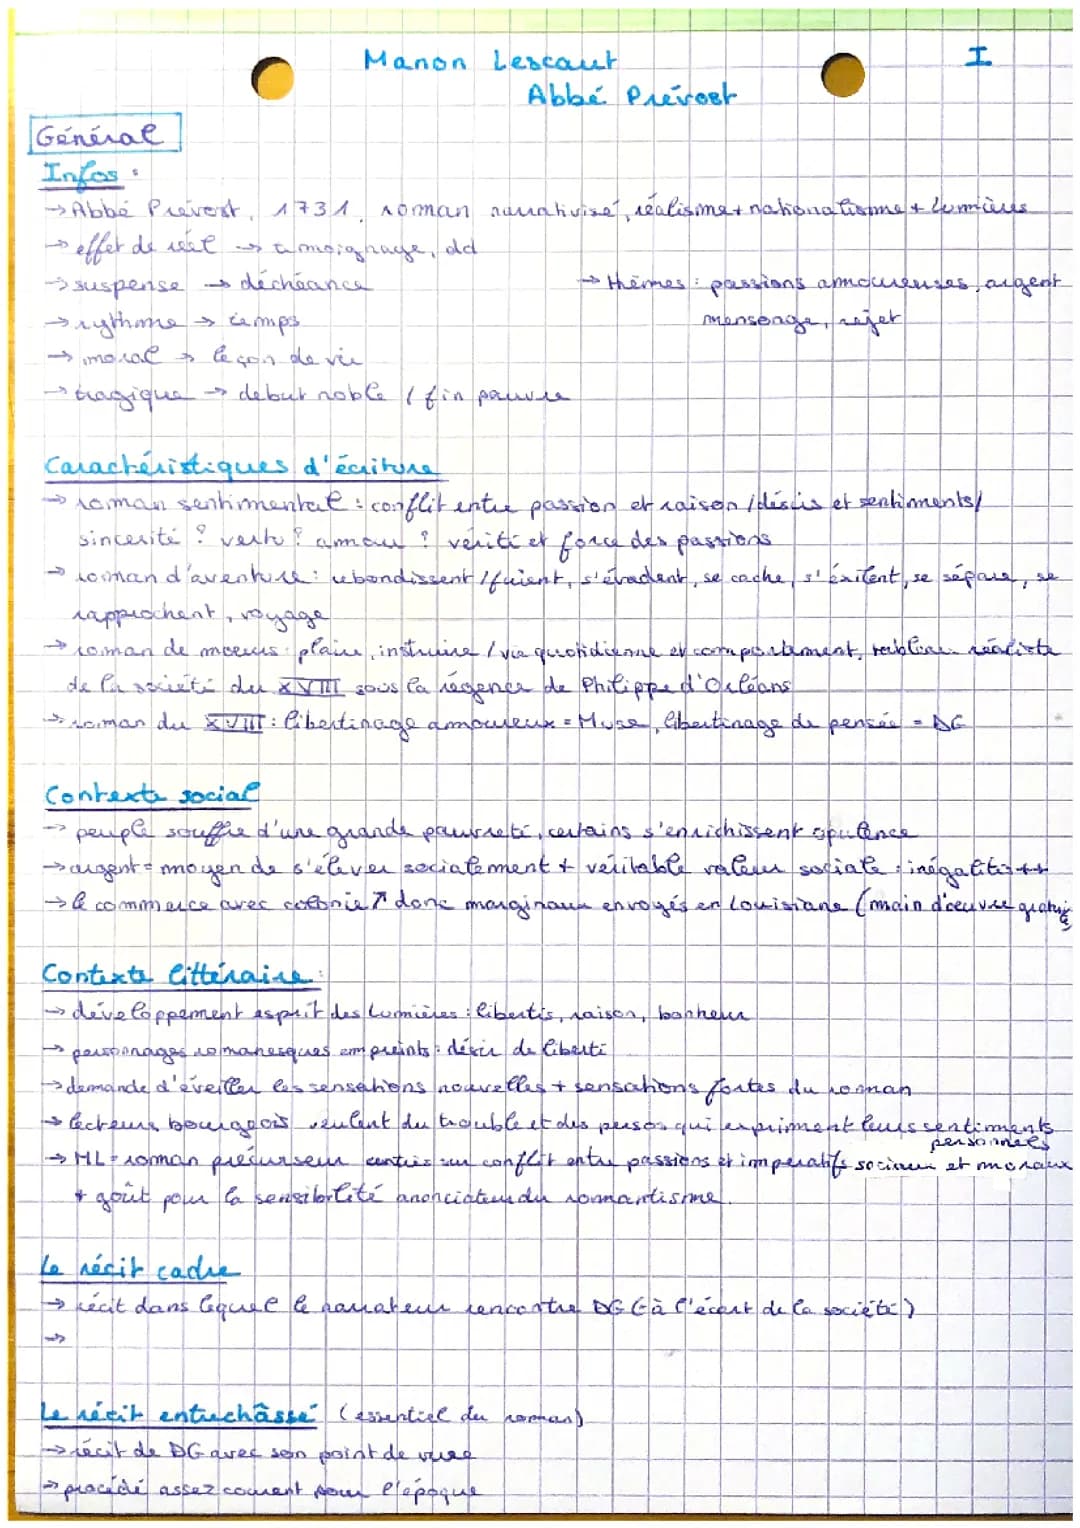 Manon Lescaut
I
Abbé Prévost
Général
Infos :
→ Abbé Prévost, 1731, roman narrativisé, réalisme + nationalisme + lumières
→ effet de réel → témoignage, dd
→ suspense → déchéance
→ thèmes : passions amoureuses, argent
→ rythme → temps
mensonge, rejet
→ moral → leçon de vie
→ tragique → debut noble / fin pauvre
Caractéristiques d'écriture
→ roman sentimental : conflit entre passion et raison / désirs et sentiments/
sincérité ? vertu ? amour ? vérité et force des passions
→ roman d'aventure : rebondissent / fuient, s'évadent, se cache, s'exilent, se sépare, se
rapprochent, voyage
→ roman de moeurs : plaire, instruire / vie quotidienne et comportement, tableau réaliste
de la société du XVIII sous la régence de Philippe d'Orléans
→ roman du XVIII : libertinage amoureux = Muse, libertinage de pensée = DG
Contexte social
→ peuple souffre d'une grande pauvreté, certains s'enrichissent opulence
→ argent = moyen de s'élever socialement + véritable valeur sociale : inégalités ++
→ le commerce avec colonie ↗ donc marginaux envoyés en Louisiane (main d'œuvre gratuite
Contexte littéraire :
→ développement esprit des Lumières : libertés, raison, bonheur
→ personnages romanesques empreints : désir de liberté
→ demande d'éveiller les sensations nouvelles + sensations fortes du roman
→ lecteurs bourgeois veulent du trouble et des perso qui expriment leurs sentiments
personnels
→ ML = roman précurseur centrés sur conflit entre passions et impératifs sociaux et moraux
+ goût pour la sensibilité anonciateur du romantisme.
Le récit cadre
→ récit dans lequel le narrateur rencontre DG (à l'écart de la société)
→
Le récit entrechâssé (essentiel du roman)
→ récit de DG avec son point de vue
→ procédé assez courant pour l'époque